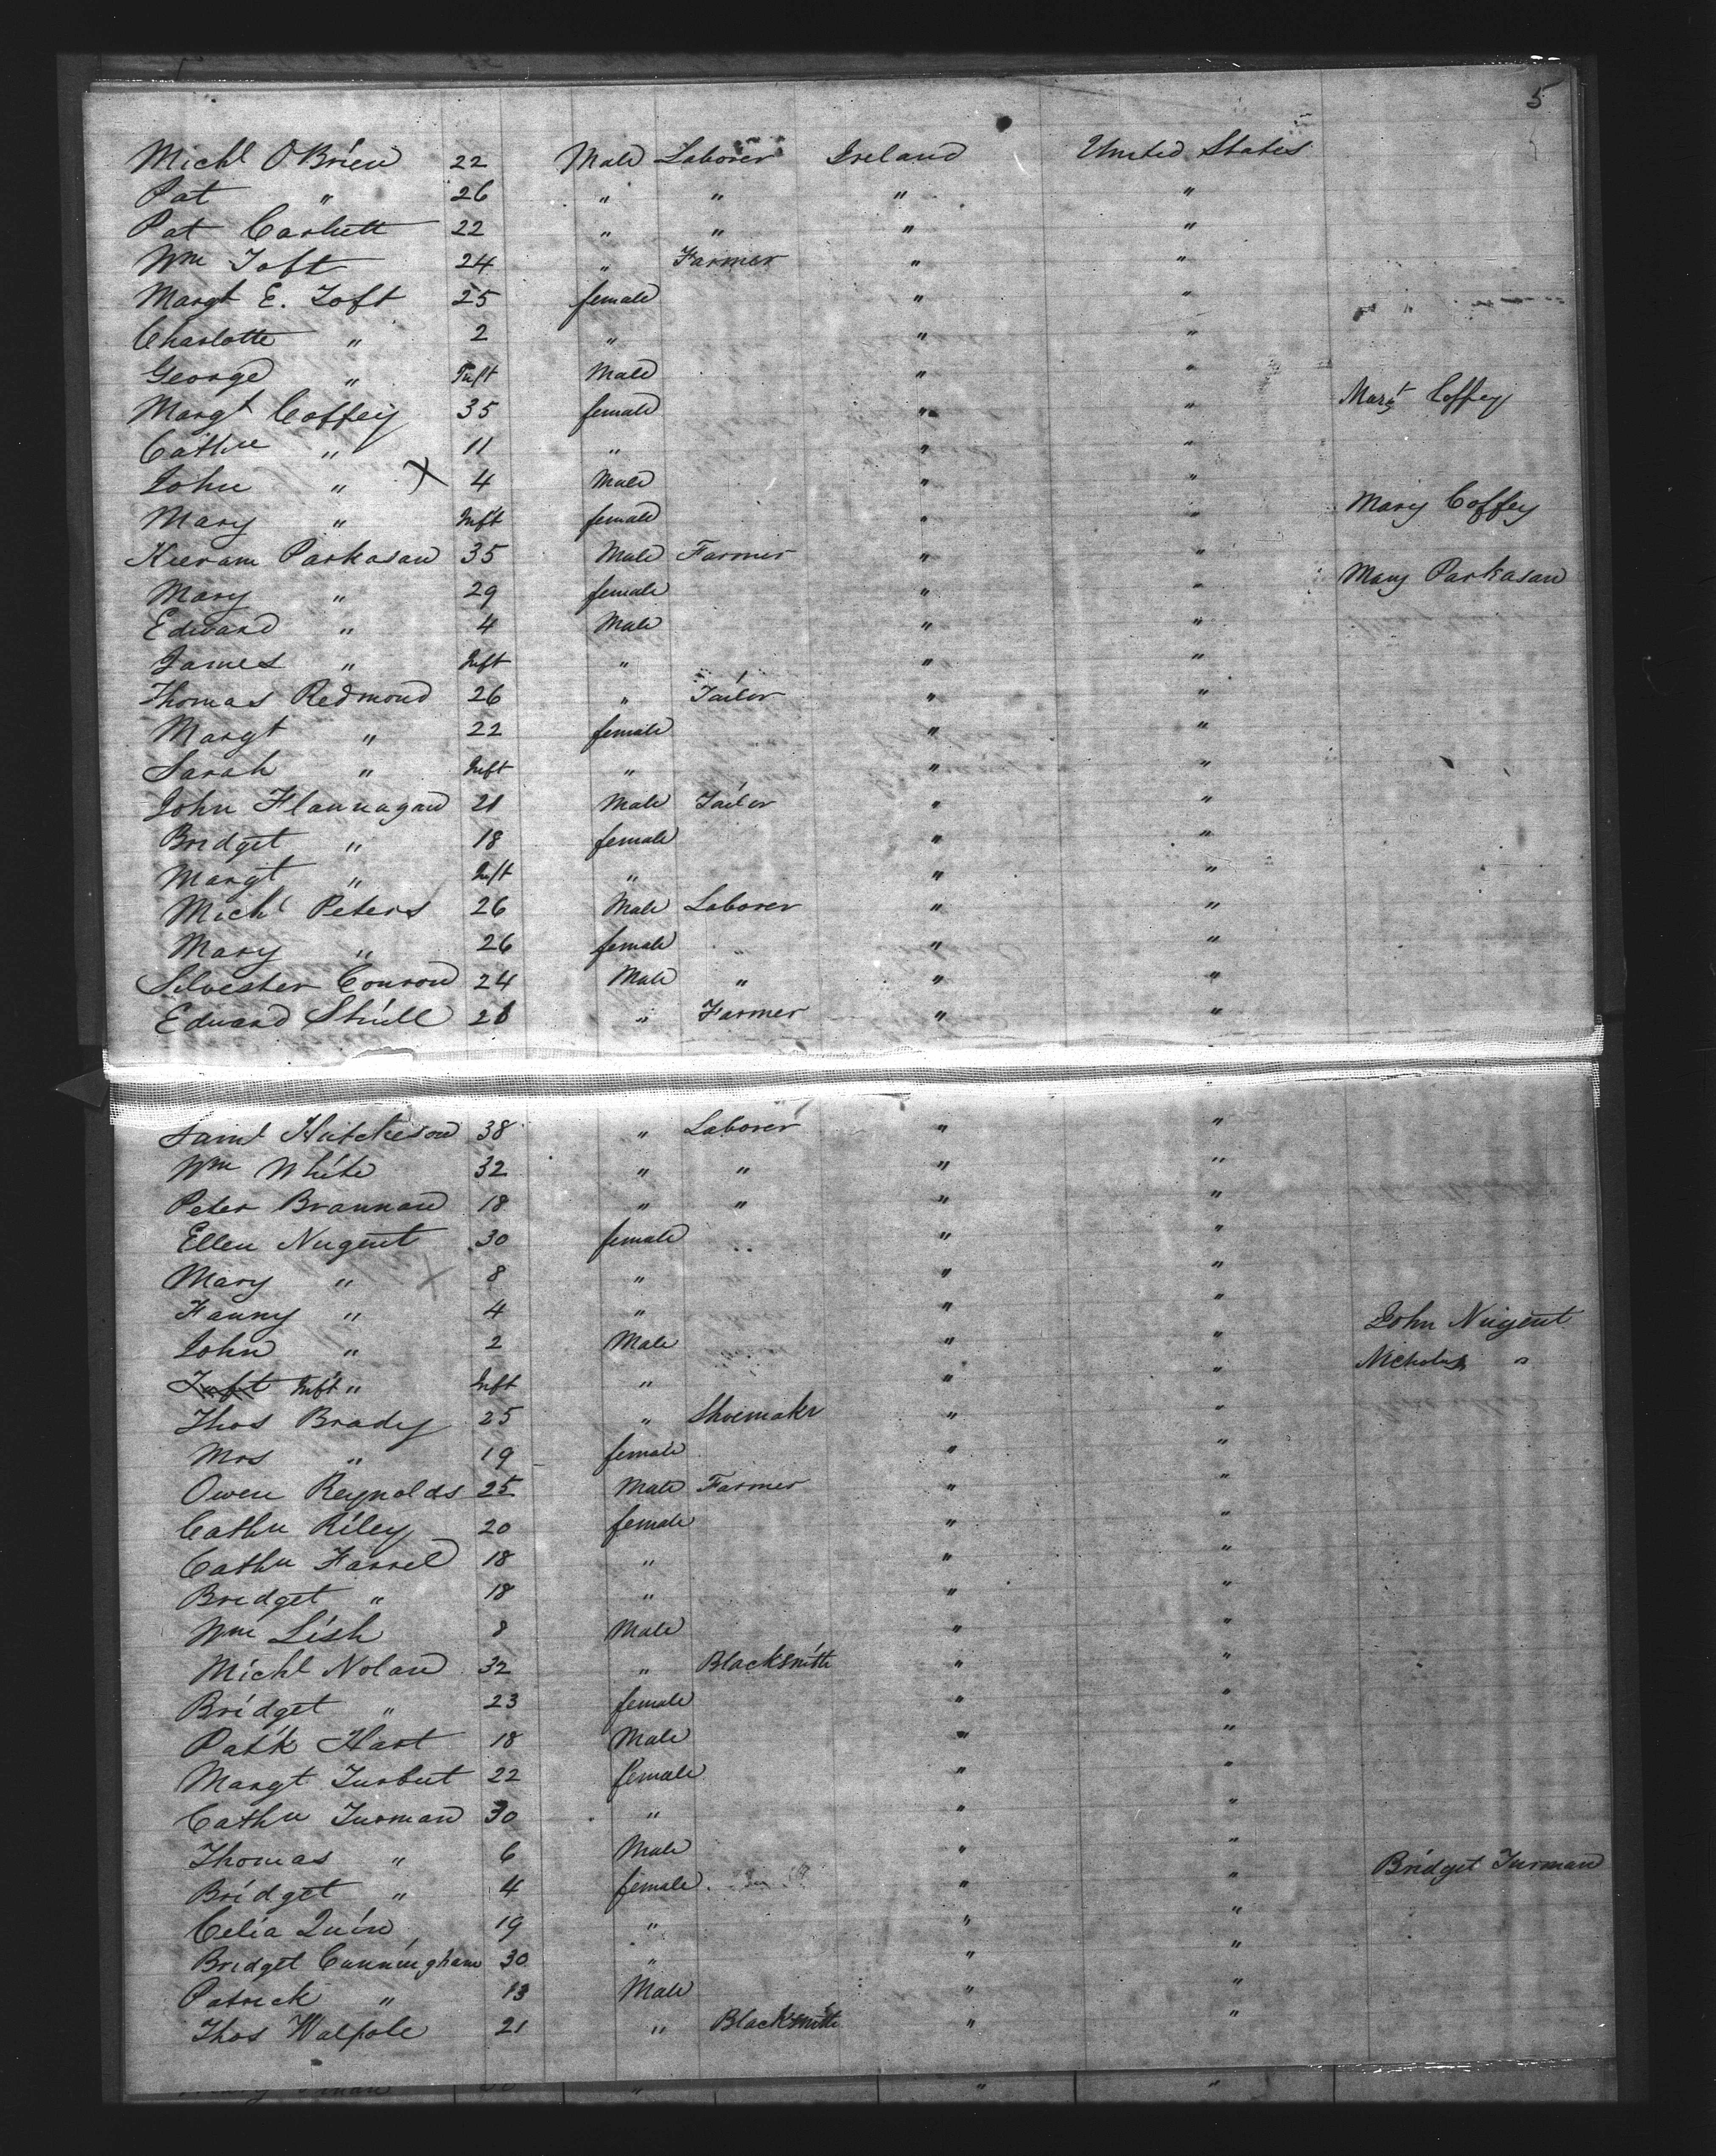 5
Michl O'Brien 22 Male Laborer Ireland United States
Pat " 26 " " " "
Pat Corbett 22 " " " "
Wm Toft 24 " Farmer " "
Margt E. Toft 25 female " "
Charlotte " 2 " " "
George " Inft Male " "
Margt Coffey 35 female " " Margt Coffey
Cathe " 11 " " "
John " X 4 Male " "
Mary " Inft female " " Mary Coffey
Parkasan 35 Male Farmer " "
Mary " 29 female " " Mary Parkasan
Edward " 4 Male " "
James " Inft " " "
Thomas Redmond 26 " Tailor " "
Margt " 22 female " "
Sarah " Inft " " "
John Flannagan 21 Male Tailor " "
Bridget " 18 female " "
Margt " Inft " " "
Michl Peters 26 Male Laborer " "
Mary " 26 female " "
Silvester Conron 24 Male " " "
Edward 26 " Farmer " "
Saml Hutcheson 38 " Laborer " "
Wm White 32 " " " "
Peter Brannan 18 " " " "
Ellen Nugent 30 female " "
Mary " X 8 " " "
Fanny " 4 " " "
John " 2 Male " " John Nugent
Inft Inft " Inft " " " Nicholas "
Thos Brady 25 " Shoemakr " "
Mrs " 19 female " "
Owen Reynolds 25 Male Farmer " "
Cathe Riley 20 female " "
Cathe Farrel 18 " " "
Bridget " 18 " " "
Wm Lish 8 Male " "
Michl Nolan 32 " Blacksmith " "
Bridget " 23 female " "
Patk Hart 18 Male " "
Margt Turbut 22 female " "
Cathe Turman 30 " " "
Thomas " 6 Male " "
Bridget " 4 female " " Bridget Turman
Celia Quin 19 " " "
Bridget Cunningham 30 " " "
Patrick " 13 Male " "
Thos Walpole 21 " Blacksmith " "